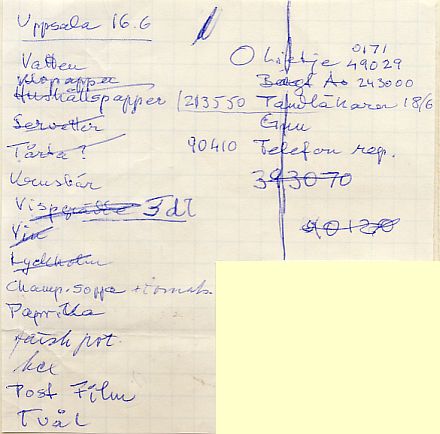 Uppsala 16.6
Vatten
Klopapper
Hushållspapper
Servetter
Tårta?
Krusbär
Vispgrädde 3 dl
Vin
Lyckholm
Champ. soppa + tomat
Paprika
färsk pot.
kex
Post Film
Tvål
0171
49029
Bengt Åo 243000
213550 Tandläkaren 18/6
90410 Telefon rep.
393070
90120